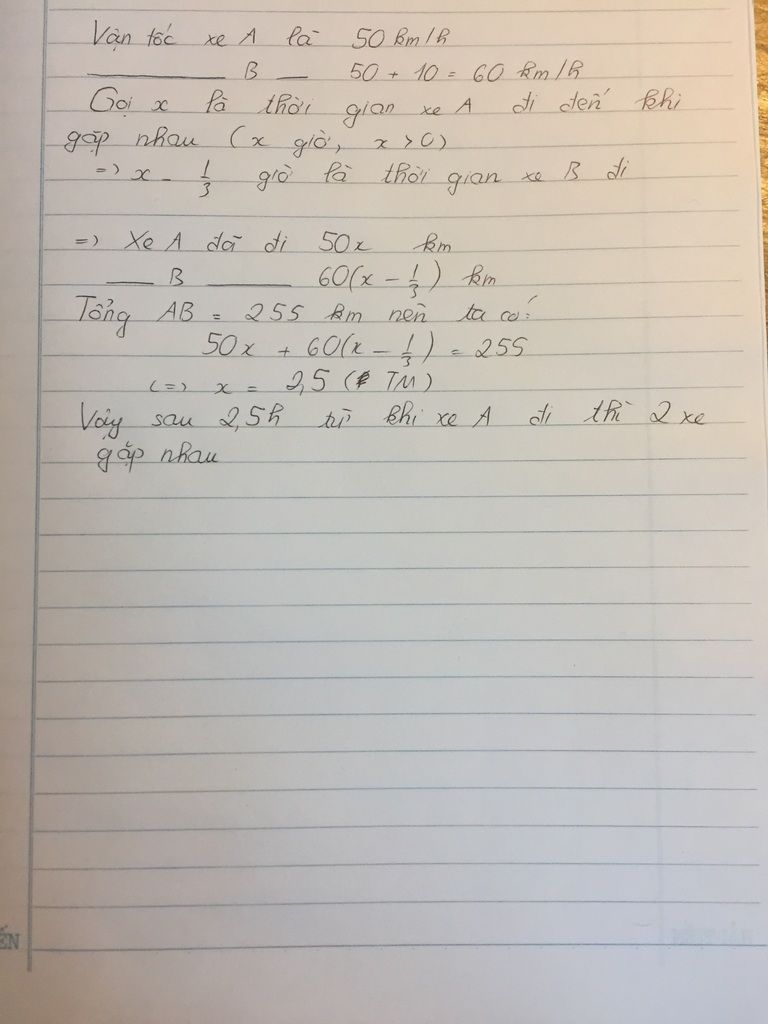 Vận tốc xe A là 50 km/h
——— B — 50 + 10 = 60 km/h
Gọi x là thời gian xe A đi đến khi
gặp nhau (x giờ, x > 0)
=> x - 1/3 giờ là thời gian xe B đi
=> Xe A đã đi 50x km
—— B ——— 60(x - 1/3) km
Tổng AB = 255 km nên ta có:
50x + 60(x - 1/3) = 255
<=> x = 2,5 (TM)
Vậy sau 2,5h từ khi xe A đi thì 2 xe
gặp nhau
ẾN